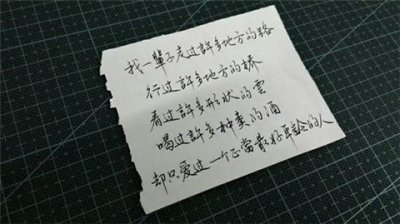 我一輩子走过許多地方的路
行过許多地方的橋
看过許多形状的雲
喝过許多种类的酒
却只爱过一个正當最好年齡的人